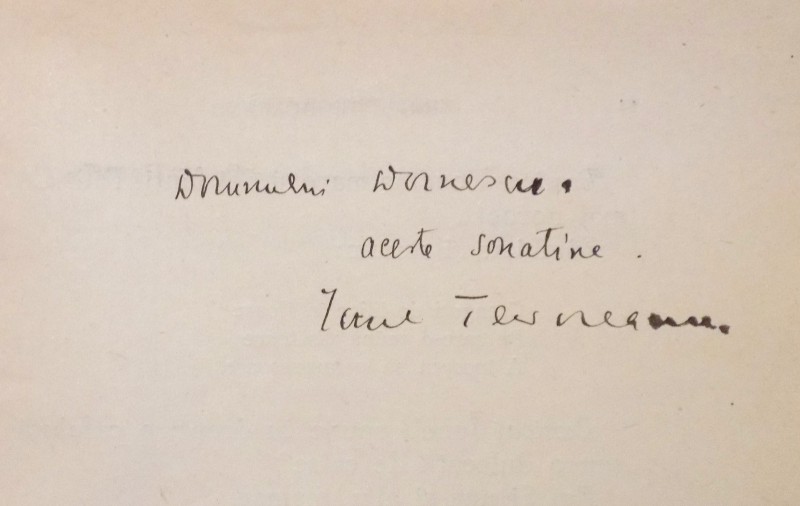 Domnului Dornescu.
aceste sonatine.
Ionel Teodoreanu.